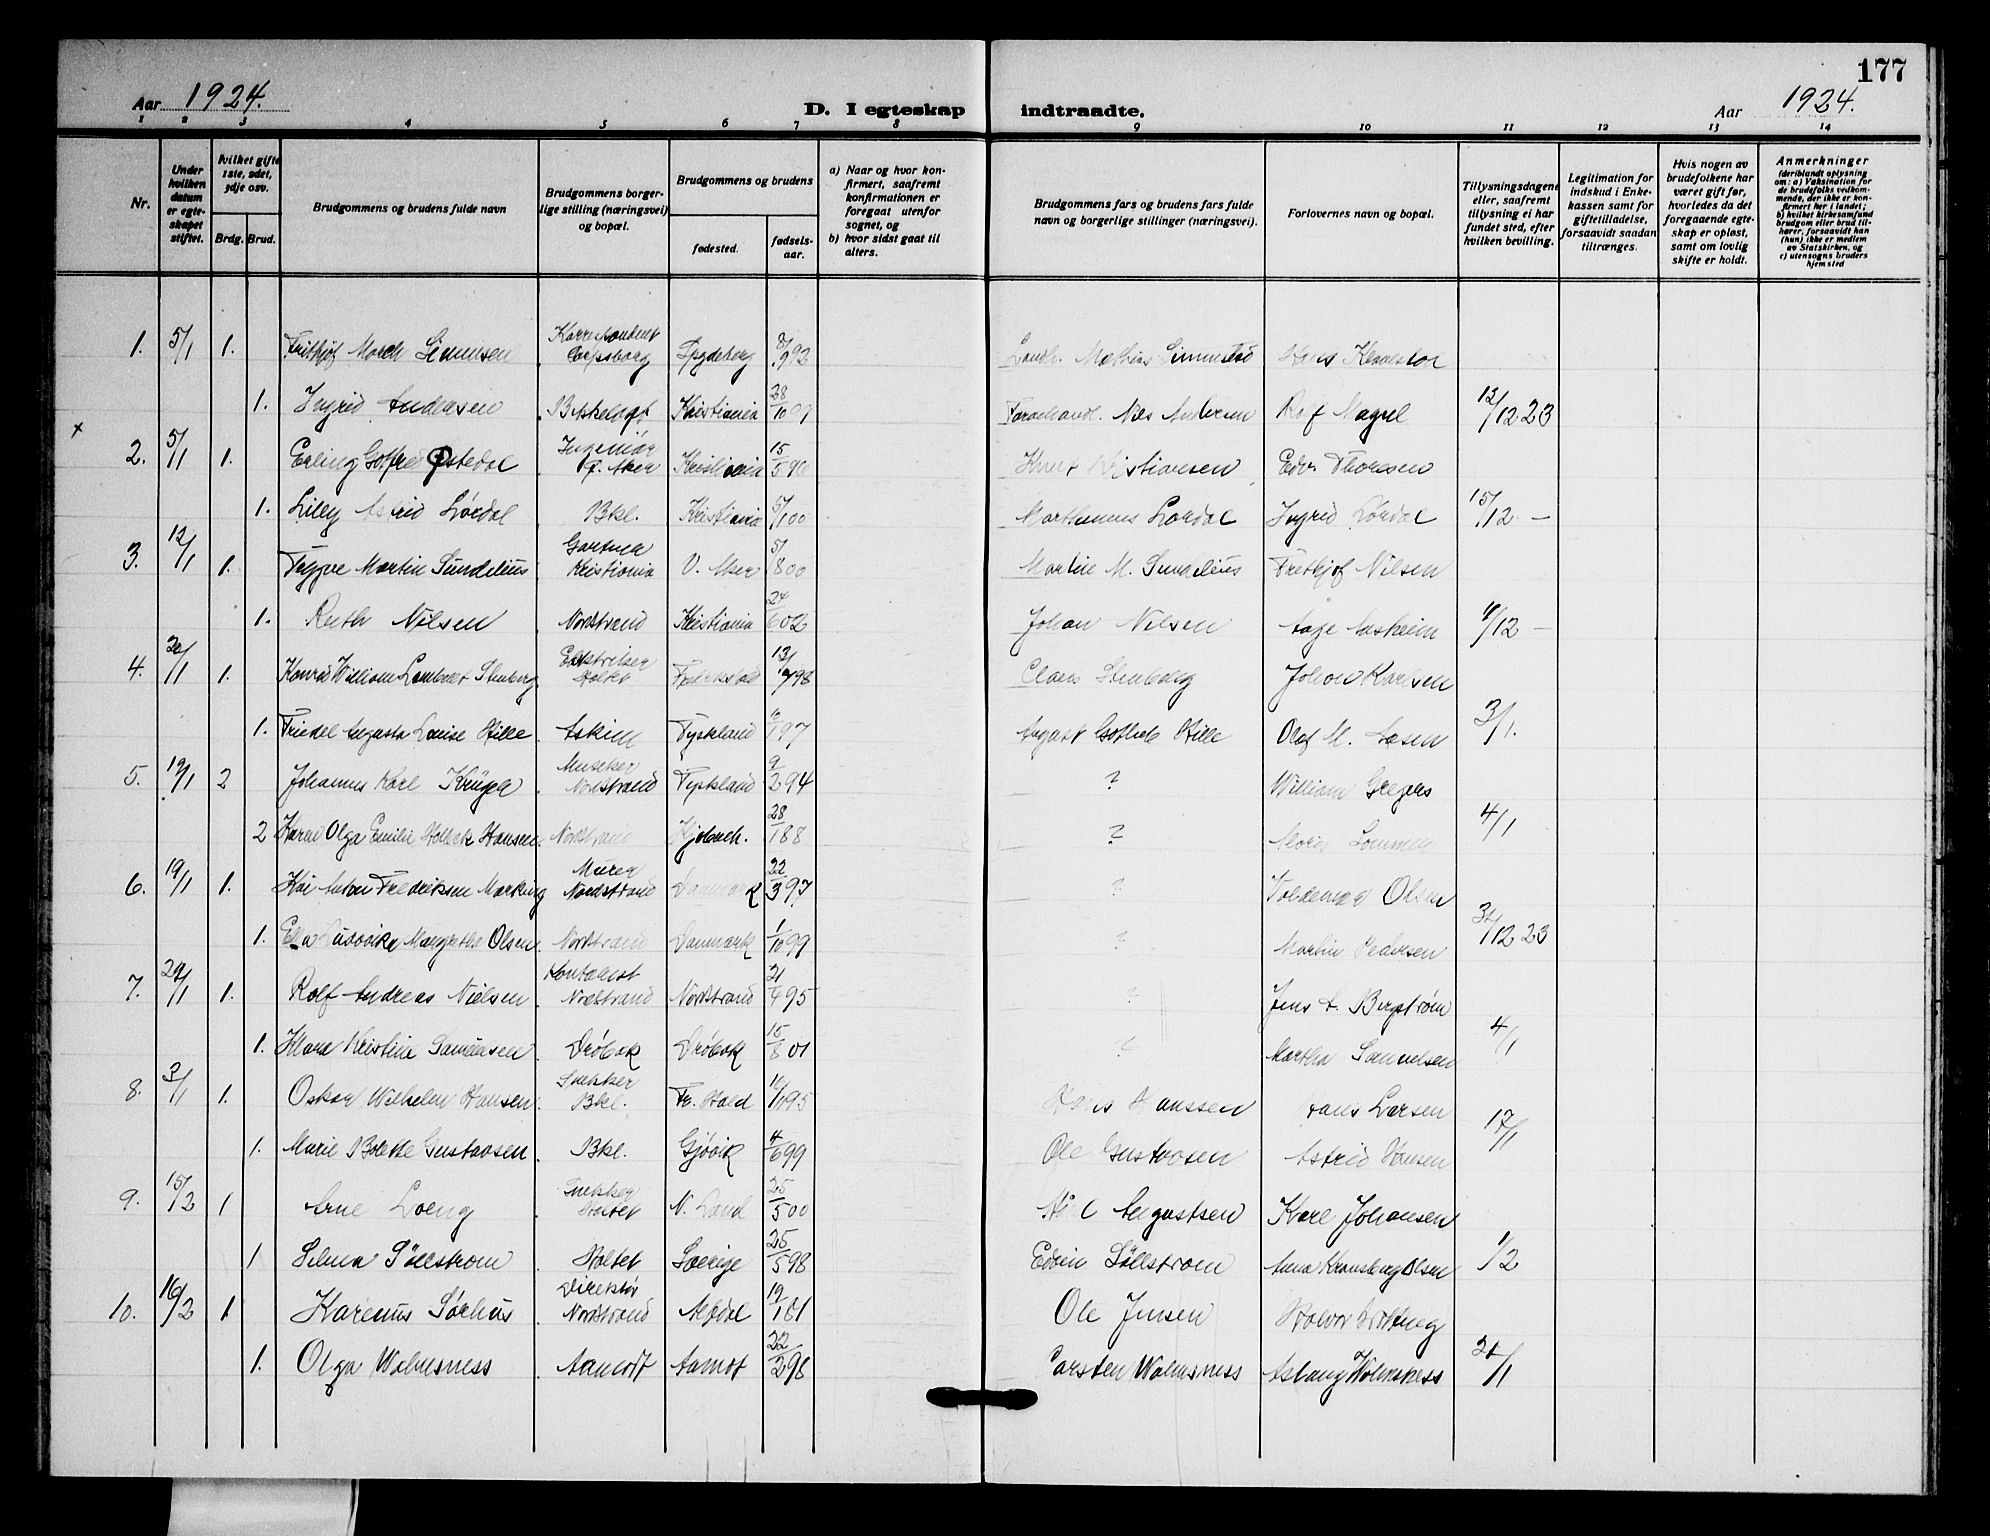 177
Aar 1924. D. I egteskap indtraadte. Aar 1924.
1 2 3 4 5 6 7 8 9 10 11 12 13 14
Nr.
Under hvilken datum er egteskapet stiftet.
hvilket gifte 1ste, 2det, 3dje osv.
Brdg. Brud.
Brudgommens og brudens fulde navn
Brudgommens borgerlige stilling (næringsvei) og bopæl.
Brudgommens og brudens
fødested. fødselsaar.
a) Naar og hvor konfirmert, saafremt konfirmationen er foregaat utenfor sognet, og
b) hvor sidst gaat til alters.
Brudgommens fars og brudens fars fulde navn og borgerlige stillinger (næringsvei).
Forlovernes navn og bopæl.
Tillysningsdagene eller, saafremt tillysning ei har fundet sted, efter hvilken bevilling.
Legitimation for indskud i Enkekassen samt for giftetilladelse, forsaavidt saadan tiltrænges.
Hvis nogen av brudefolkene har været gift før, hvorledes da det foregaaende egteskap er opløst, samt om lovlig skifte er holdt.
Anmerkninger (deriblandt oplysning om: a) Vaksination for de brudefolks vedkommende, der ikke er konfirmert her i landet; b) hvilket kirkesamfund brudgom eller brud tilhører, forsaavidt han (hun) ikke er medlem av Statskirken, og c) utensogns bruders hjemsted
1. 5/1 1. Fritjof Morch Simensen Korrespondent Sarpsborg Spydeberg 892
1. Ingrid Andersen Bekkelaget Kristiania 28/10 Nils Andersen Rolf Magnel 12/12 23
2. 5/1 1. Erling Østedal Ingeniør Ø. Aker Kristiania 15/5 90 Kristiansen Edv. Thoresen
1. Lilly Astrid Lørdal Bkl. Kristiania 5/1 00 Marthinius Lørdal Ingrid Lørdal 15/12 —
3. 12/1 1. Trygve Martin Sundelius Gartner Kristiania V. Aker 5/8 00 Martin M. Sundelius Fritjof Nilsen
1. Ruth Nilsen Nordstrand Kristiania 24/6 02 Johan Nilsen Aage Aasheim /12 —
4. 20/1 1. Konrad William Stenberg Holtet 98 Claes Stenberg Johan Karlsen
1. Friedel Augusta Louise Hille Askim Tyskland 97 August Hille Olaf M. 3/1.
5. 19/1 2 Johannes Karl Krüger Musiker Nordstrand Tyskland 9/2 94 ? William Gregers
2 Karen Olga Emilie Hansen Nordstrand Kjøbenh. 28/1 88 ? 4/1
6. 19/1 1. Kai Anton Fredriksen Murer Nordstrand Danmark 22/3 97 ? Olsen
1. Margrethe Olsen Nordstrand Danmark 1/10 99 ? Martin Pedersen 31/12 23
7. 29/1 1. Rolf Andreas Nielsen Kontorist Nordstrand Nordstrand 21/4 95 ? Jens A. Bergstrøm
1. Kristine Samuelsen Drøbak Drøbak 15/8 01 ? Martha Samuelsen 4/1
8. 3/1 1. Oskar Wilhelm Hansen Snekker Bkl. Fr. Hald 95 Hans Hanssen Hans Larsen
1. Marie Bolette Gustavsen Bkl. Gjøvik 4/6 99 Ole Gustavsen Astrid Hansen 17/1
9. 15/2 1 Arne Loeng Snekker Holtet N. Land 25/5 00 Augustsen Kare Johansen
1 Selma Søllstrom Holtet Sverige 25/5 98 Edvin Søllstrom Anna Olsen 1/2
10. 16/2 1 Karenus Sørhus Direktør Nordstrand 19/1 81 Ole Jensen Halvor
1. Olga Walmsness Aamodt Aamot 22/2 98 Carsten Walmsness Aslaug Walmsness 21/1